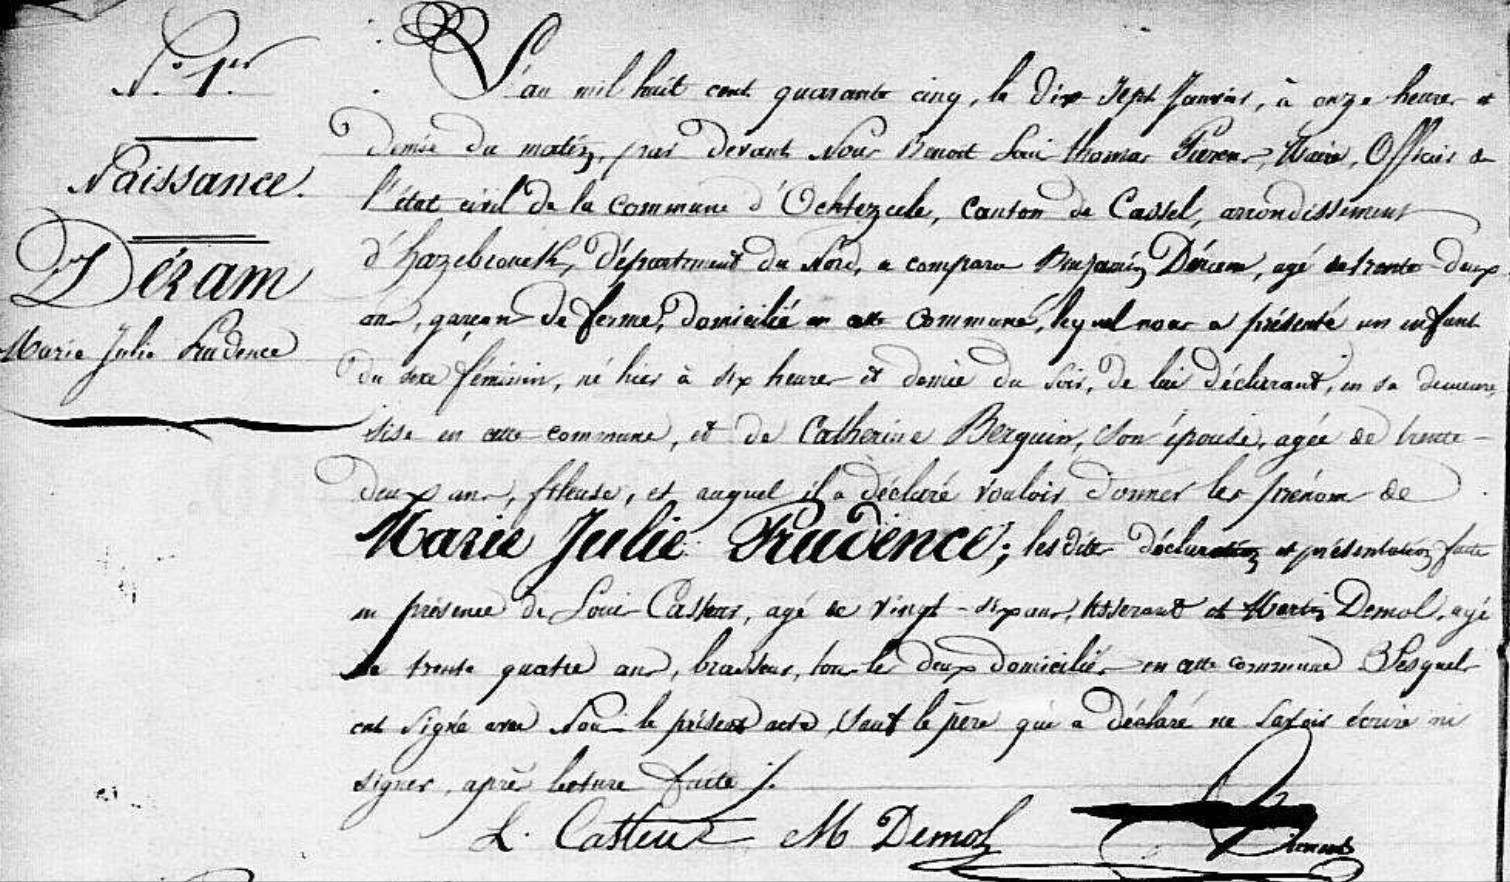 N.° 1.er
Naissance.
Déram
Marie Julie Prudence
L'an mil huit cent quarante cinq, le dix sept Janvier, à onze heures et
demie du matin, par devant Nous Benoit Louis thomas Maire, Officier de
l'état civil de la commune d'Ochtezeele, canton de Cassel, arrondissement
d'hazebrouck, département du Nord, a comparu Benjamin Déram, agé de trente-deux
ans, garçon de ferme, domicilié en cette commune, lequel nous a présenté un enfant
du sexe féminin, né hier à six heures et demie du soir, de lui déclarant, en sa demeure
sise en cette commune, et de Catherine Berquin, son épouse, agée de trente-
deux ans, fileuse, et auquel il a déclaré vouloir donner les prénoms de
Marie Julie Prudence; lesdites déclaration et présentation faite
en présence de Louis Casteur, agé de vingt-six ans, tisserand et Martin Demol, agé
de trente quatre ans, brasseur, tous les deux domiciliés en cette commune lesquels
ont signé avec Nous le présent acte, sauf le père qui a déclaré ne savoir écrire ni
signer, après lecture faite ./.
L. Casteur M Demol